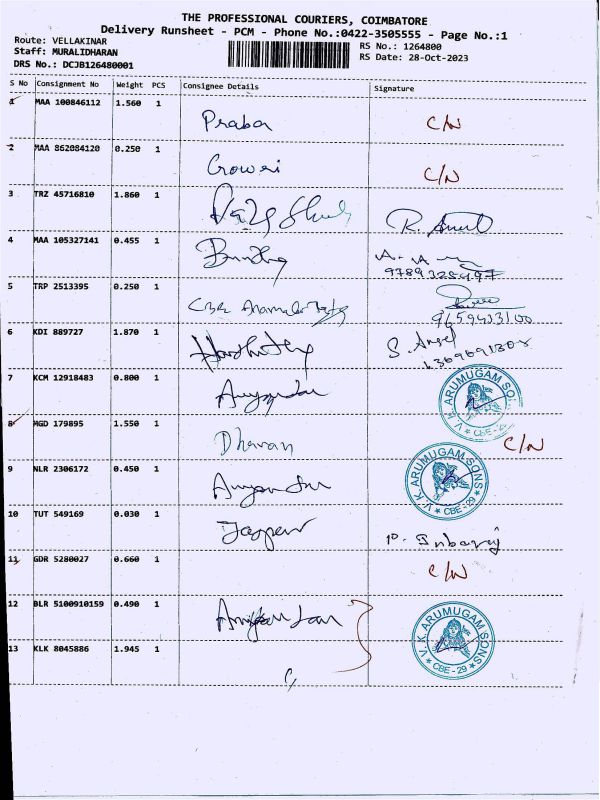 THE PROFESSIONAL COURIERS, COIMBATORE
Delivery Runsheet - PCM - Phone No.:0422-3505555 - Page No.:1
Route: VELLAKINAR
Staff: MURALIDHARAN
DRS No.: DCJB126480001
RS No.: 1264800
RS Date: 28-Oct-2023
S No Consignment No Weight PCS Consignee Details Signature
1 MAA 100846112 1.560 1 Praba C/N
2 MAA 862084120 0.250 1 Gowri C/N
3 TRZ 45716810 1.860 1 R.
4 MAA 105327141 0.455 1
5 TRP 2513395 0.250 1 CBE
6 KDI 889727 1.870 1 S. Angel
7 KCM 12918483 0.800 1 V.K. ARUMUGAM SO CBE-29
8 MGD 179895 1.550 1 Dharan C/N
9 NLR 2306172 0.450 1 V.K. ARUMUGAM SONS CBE-29
10 TUT 549169 0.030 1 P. Inbaraj
11 GDR 5280027 0.660 1 C/N
12 BLR 5100910159 0.490 1 V.K. ARUMUGAM SONS CBE-29
13 KLK 8045886 1.945 1